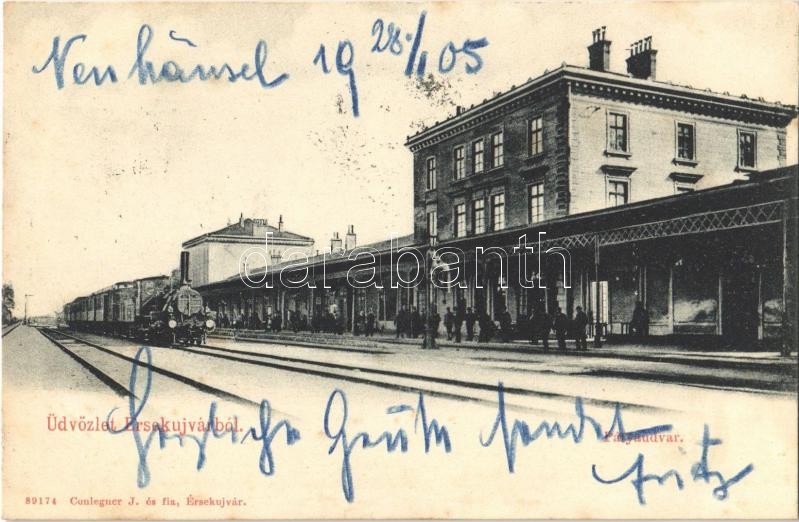 Neuhäusel 19 28./1 05
darabanth
Üdvözlet Érsekujvárból.
Pályaudvar.
Herzliche Grüße sendet
Fritz
89174 Conlegner J. és fia, Érsekujvár.